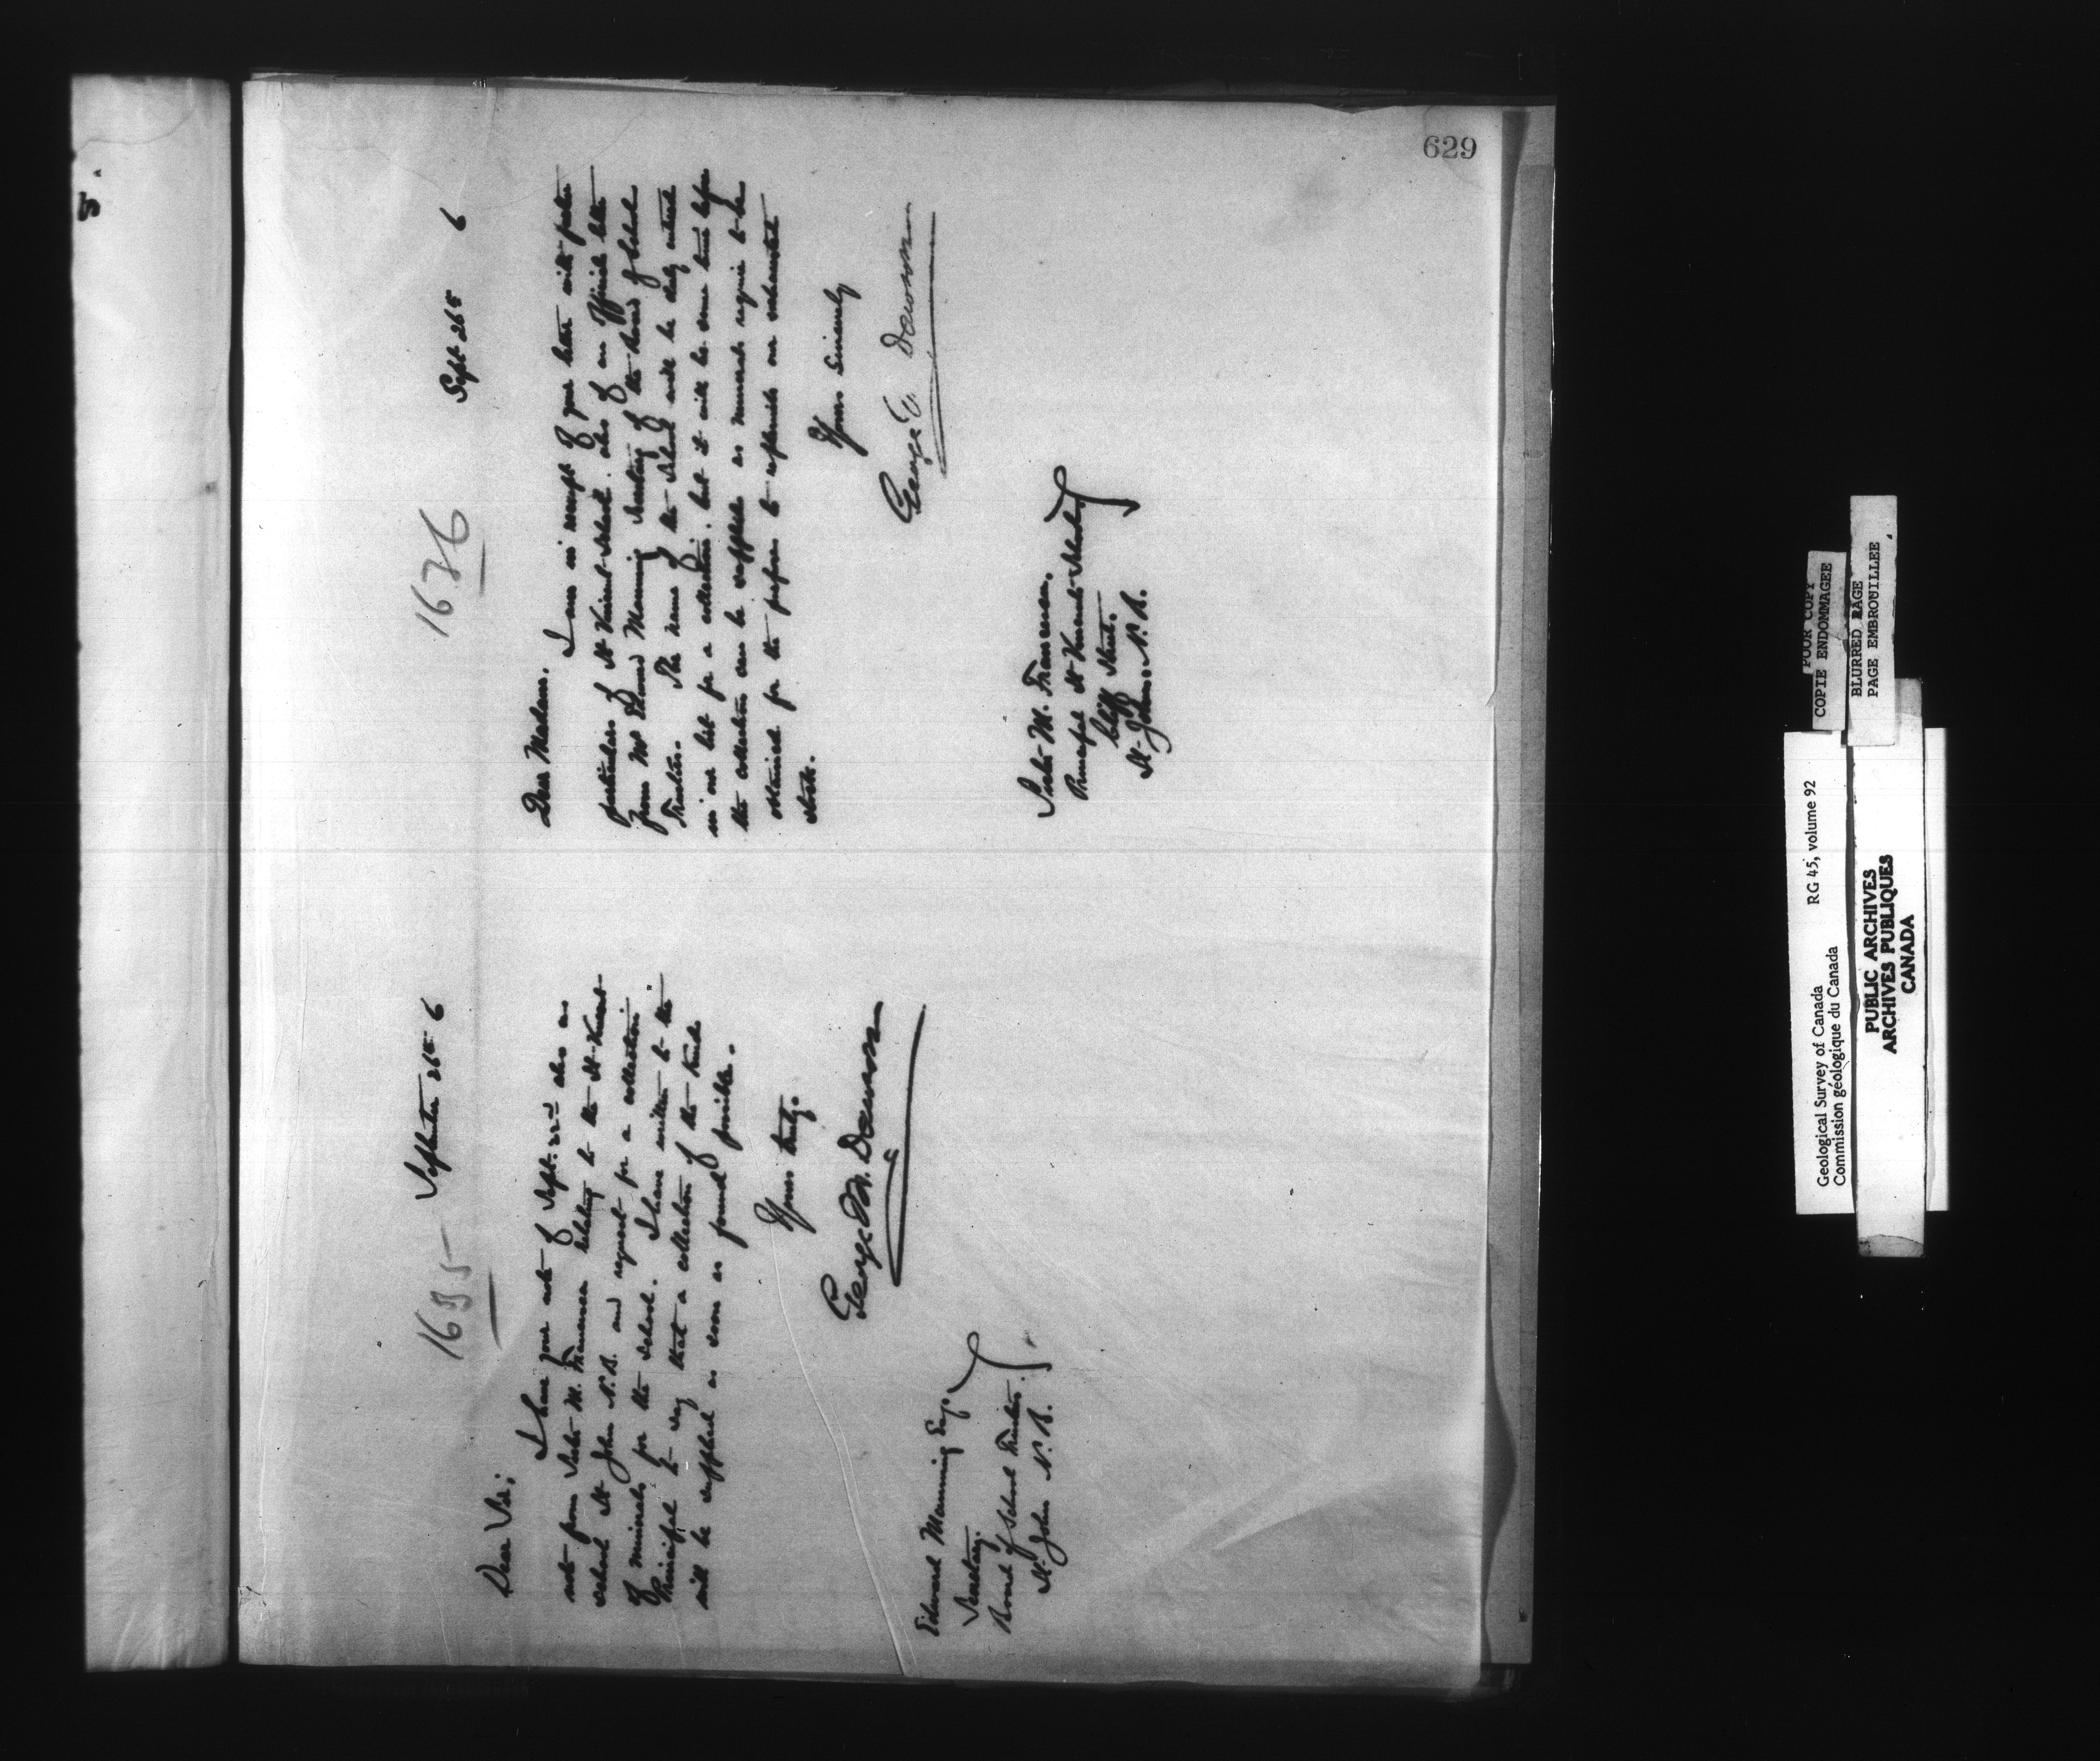 629
1635
September 26th 6
Dear Sir;
I have your note of Sept. 22nd also an
note from Sister M. relating to the St Vincent
School St John N.B. and request for a collection
of minerals for the School. I have written to the
Principal to say that a collection of the kind
will be supplied as soon as found possible.
Yours truly.
George M. Dawson
Edward Manning Esq.
Secretary.
Board of School Trustees.
St. John N.B.
1636
Sept 26th 6
Dear Madam.
I am in receipt of your letter with further
particulars of St Vincent School. also of an official letter
from Mr Edward Manning Secretary of the Board of School
Trustees. The name of the School will be duly entered
in our list for a collection; but it will be some time before
the collection can be supplied as minerals require to be
obtained for the purpose to replenish our exhausted
stock.
Yours sincerely
George M. Dawson
Sister M.
Principal St Vincent School
Cliff Street.
St. John. N.B.
POOR COPY
COPIE ENDOMMAGEE
BLURRED PAGE
PAGE EMBROUILLEE
Geological Survey of Canada RG 45, volume 92
Commission géologique du Canada
PUBLIC ARCHIVES
ARCHIVES PUBLIQUES
CANADA